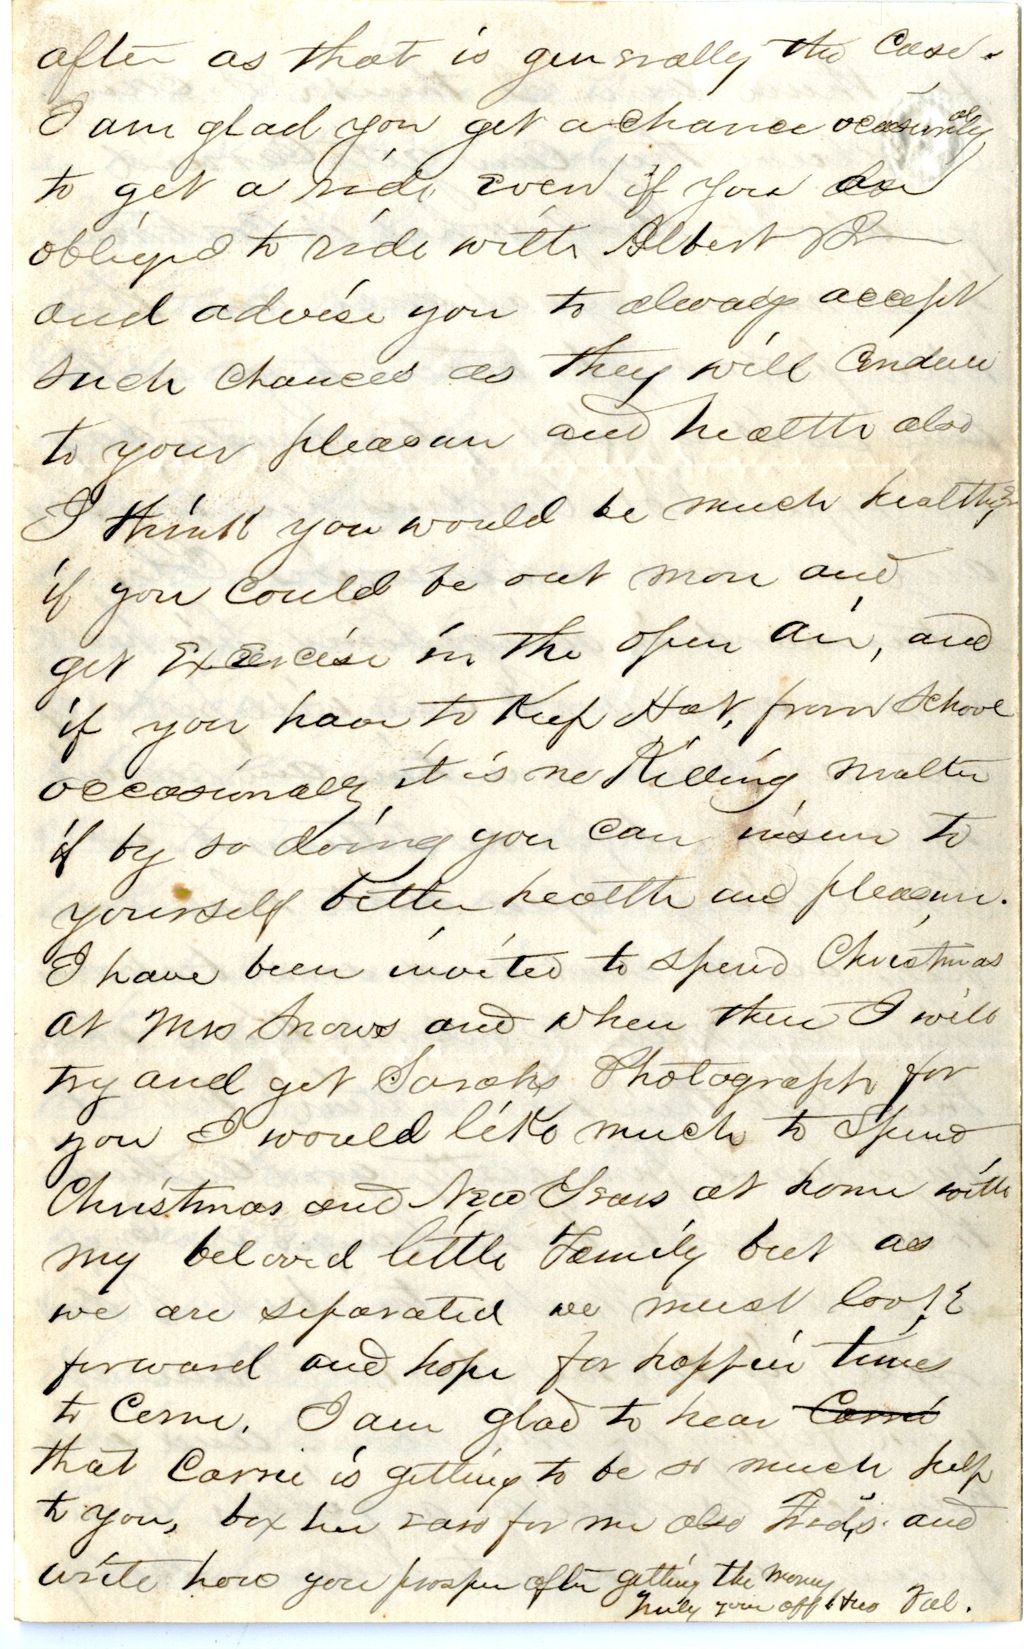 after as that is generally the case.
I am glad you get a chance occasionally
to get a ride even if you are
obliged to ride with Albert
and advise you to always accept
such chances as they will conduce
to your pleasure and health also
I think you would be much healthyer
if you could be out more and
get Exercise in the open air, and
if you have to keep Hat, from School
occasionally it is no Killing matter
if by so doing you can insure to
yourself better health and pleasure.
I have been invited to spend Christmas
at Mrs Snows and when there I will
try and get Sarahs Photograph for
you I would like much to spend
Christmas and New Years at home with
my beloved little Family but as
we are separated we must look
forward and hope for happier times
to come. I am glad to hear Carrie
that Carrie is getting to be so much help
to you, box her ears for me also Fred's and
write how you prosper after getting the money
Truly your aff Hus Val.